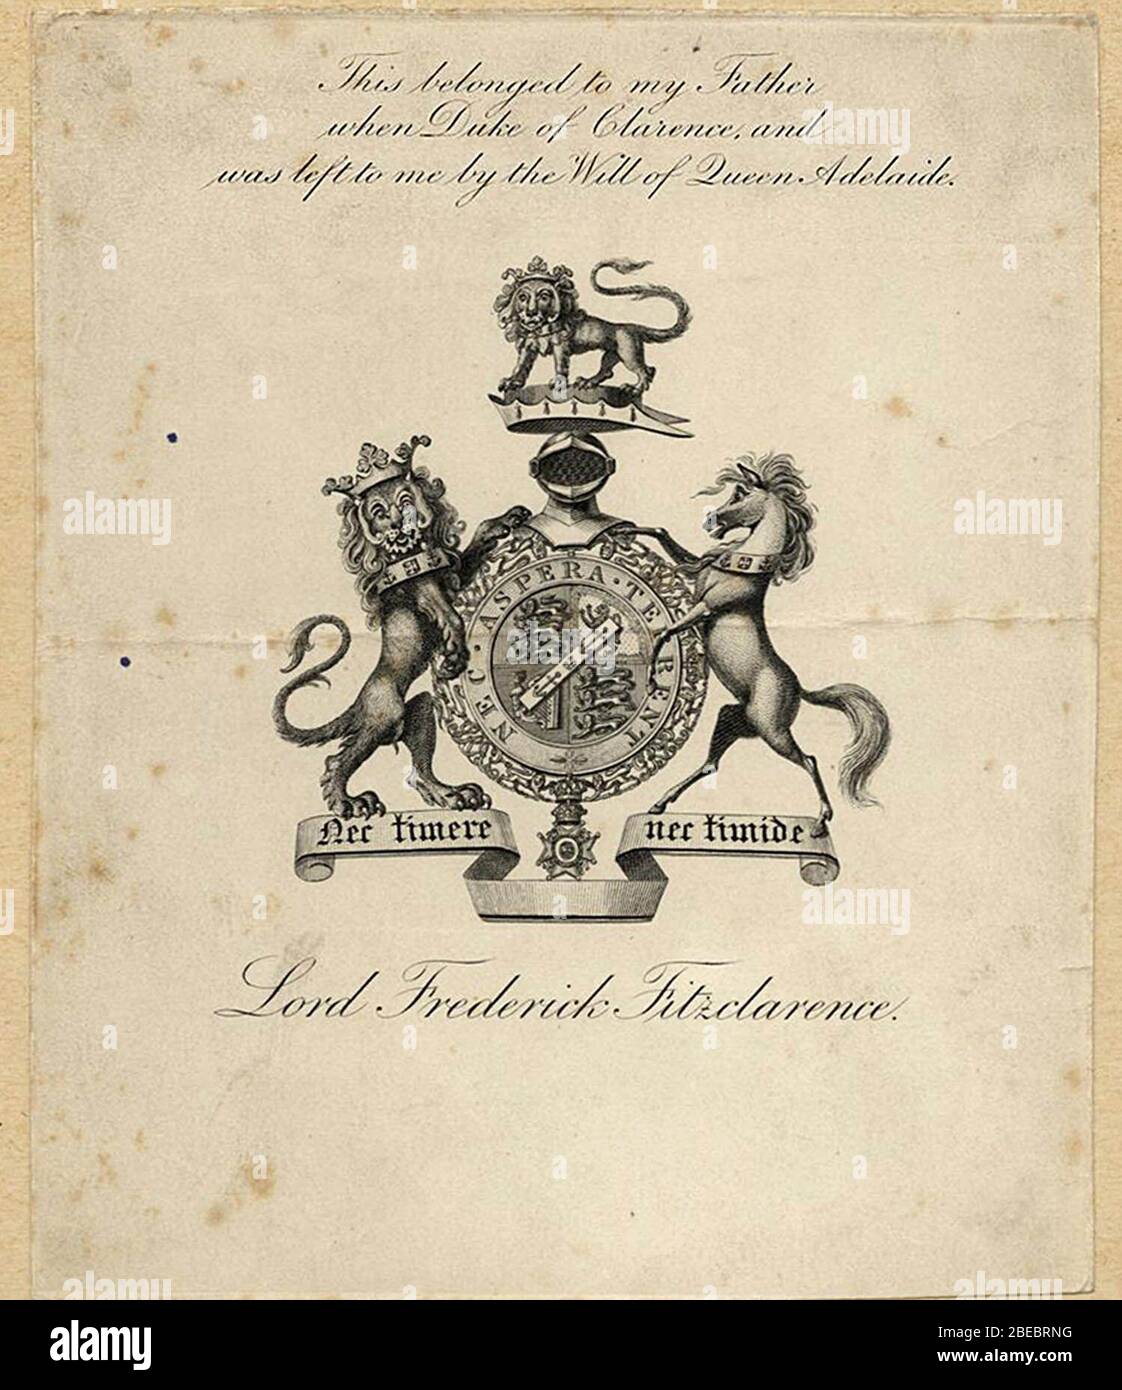 This belonged to my Father
when Duke of Clarence, and
was left to me by the Will of Queen Adelaide.
NEC · ASPERA · TERRENT
Nec timere
nec timide
Lord Frederick Fitzclarence.
alamy
alamy
Image ID: 2BEBRNG
www.alamy.com